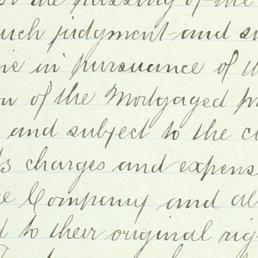 the passing of the
such judgment and su
in pursuance of th
of the Mortgaged pr
and subject to the c
charges and expens
Company and al
to their original rig